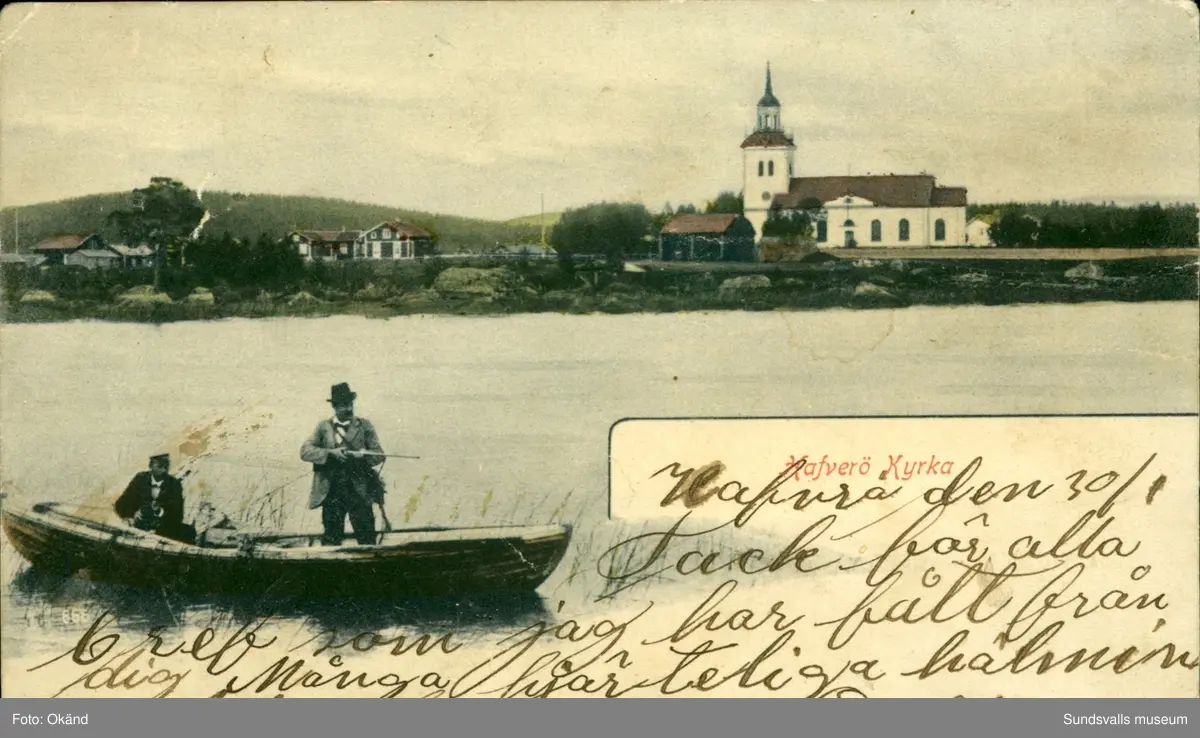 Hafverö Kyrka
Hafvrå den 30/1
Tack för alla
bref som jag har fått från
dig Många hjärteliga hälmin
Foto: Okänd
Sundsvalls museum